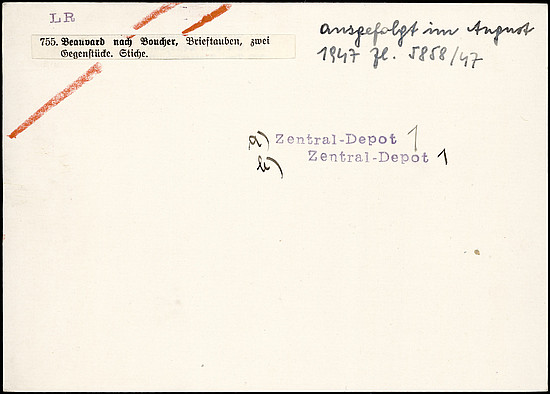 LR
755. Beauvard nach Boucher, Brieftauben, zwei
Gegenstücke. Stiche.
ausgefolgt im August
1947 Zl. 5858/47
a) Zentral-Depot 1
b) Zentral-Depot 1